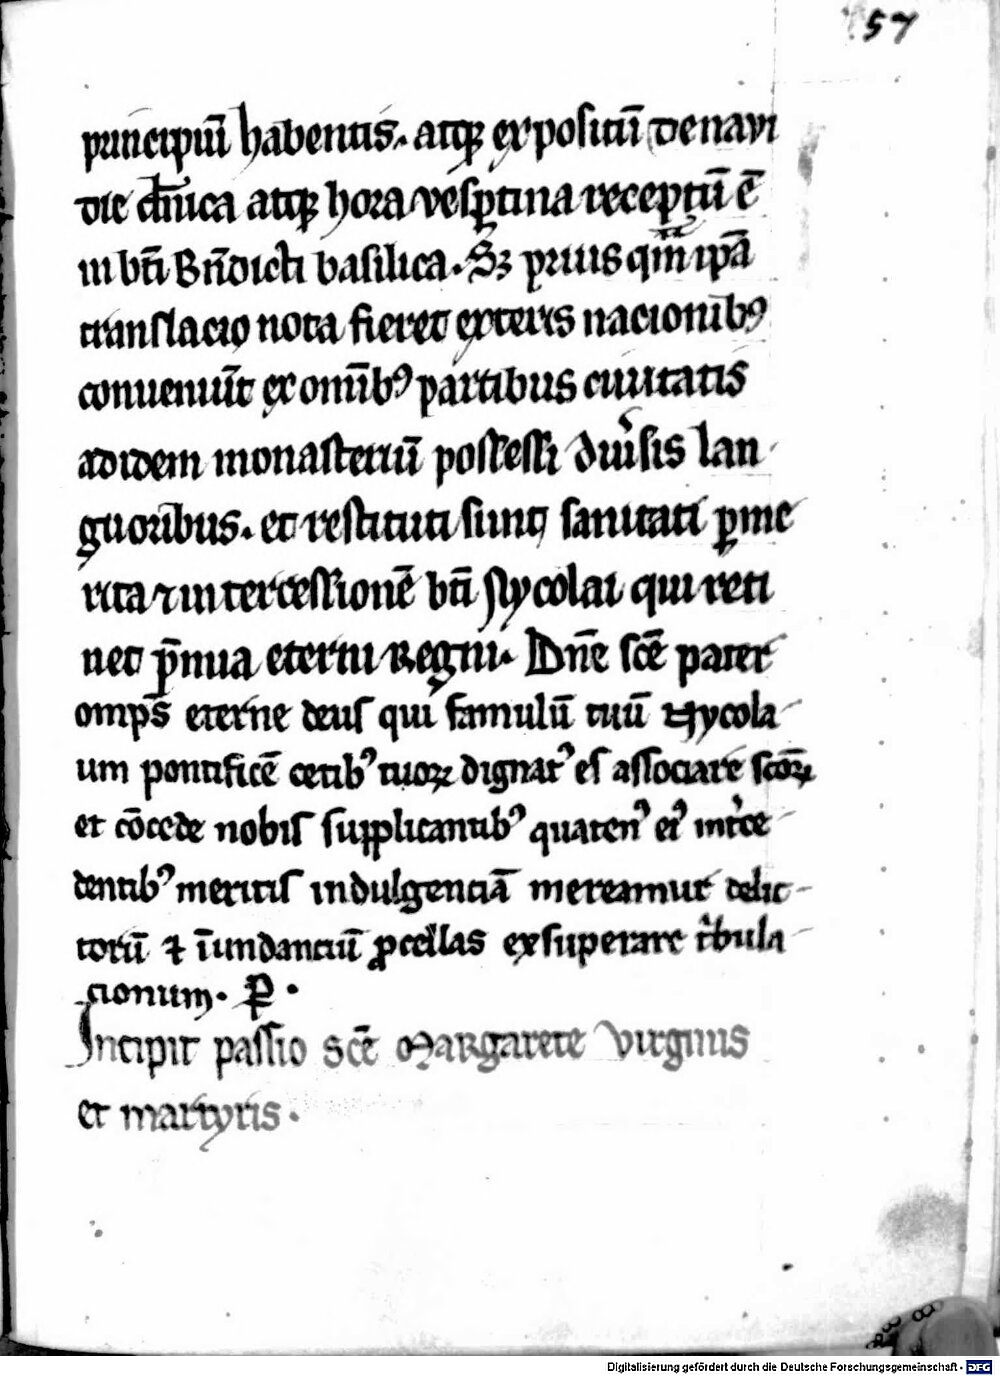 57
principiū habentis. atqꝫ expositū de navi
die dn̄ica atqꝫ hora vesꝑtina receptū ē
in bt̄i Bn̄dicti basilica. Sꝫ prius qm̄ ip̄a
translacio nota fieret exteris nacionibꝰ
conuenunt̄ ex om̄ibꝰ partibus ciuitatis
ad idem monasteriū possessi diuˀsis lan
guoribus. et restituti sunt sanitati ꝑ me
rita ⁊ intercessionē bt̄i Nycolai qui reti
net p̄mia eterni Regni. Dn̄e sc̄e pater
omp̄s eterne deus qui famulū tuū Nycola
um pontificē cetibꝰ tuoꝝ dignatꝰ es associare sc̄oꝝ
et cōcede nobis supplicantibꝰ quatenꝰ eiꝰ intˀce
dentibꝰ meritis indulgenciā mereamur delic-
torū ⁊ īundanciū ꝓcellas exsuperare tˀbula
cionum. P̱.
Incipit passio sc̄e Margarete virginis
et martyris.
Digitalisierung gefördert durch die Deutsche Forschungsgemeinschaft - DFG